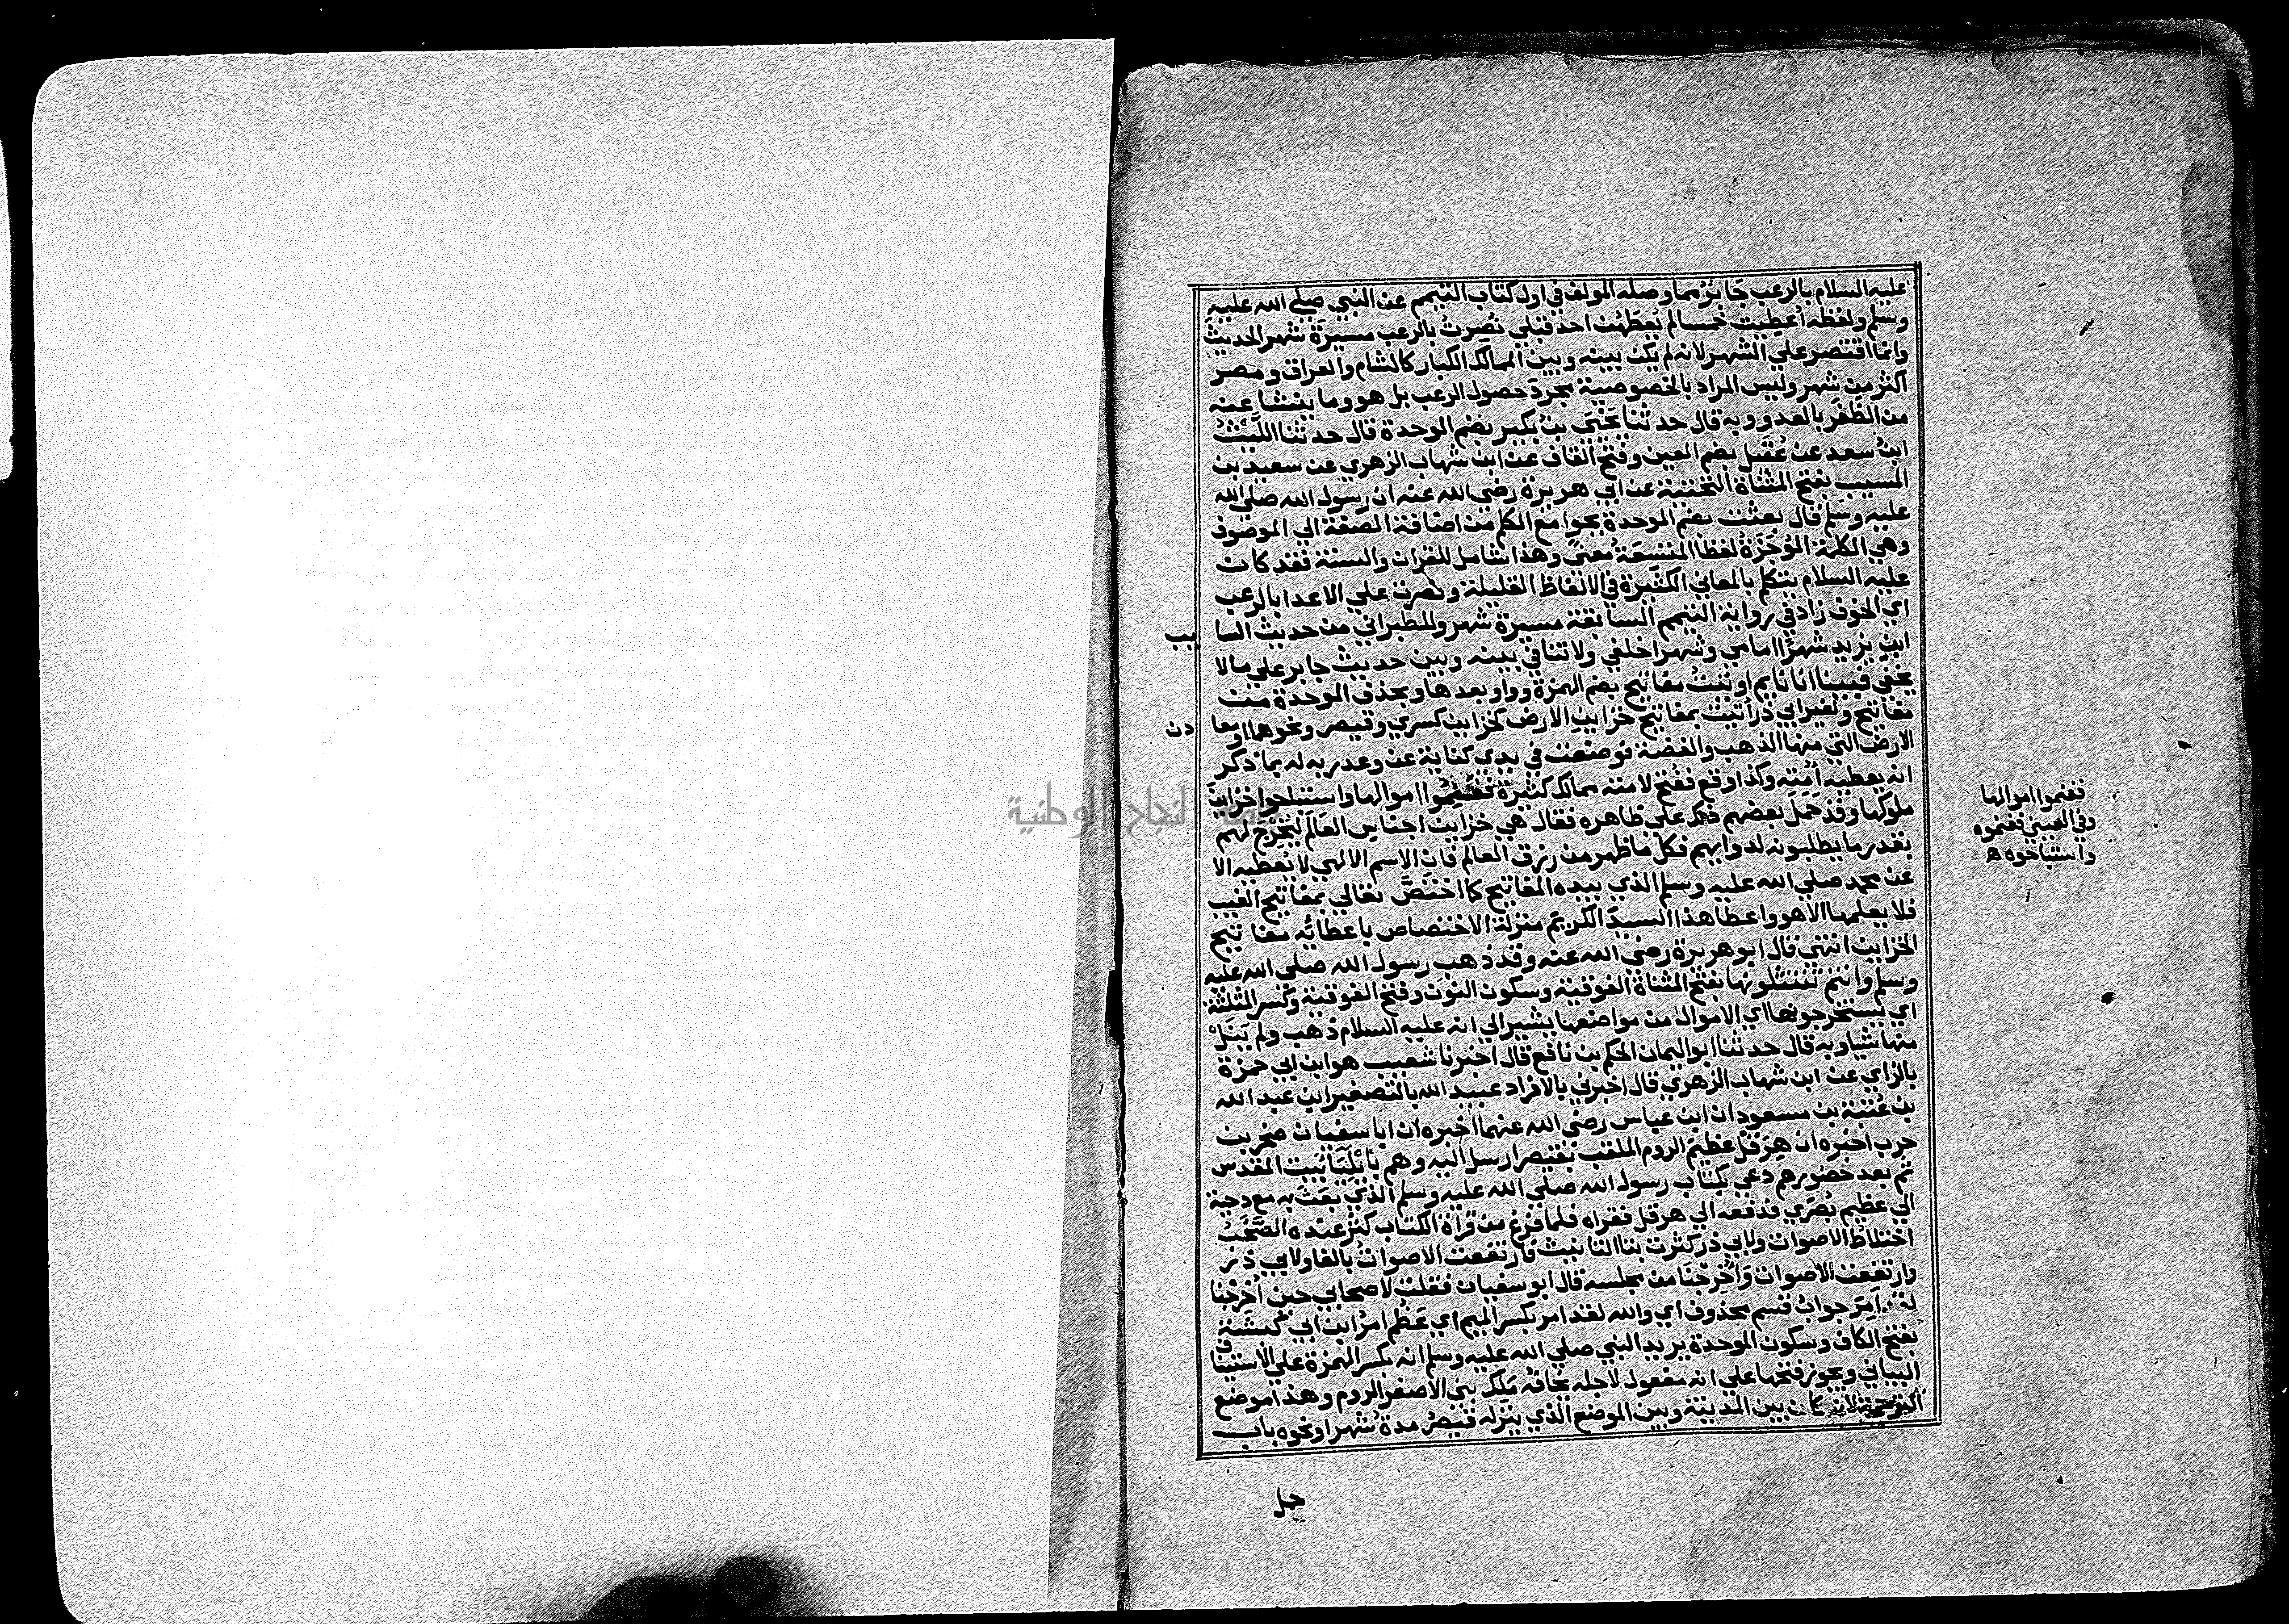 عليه السلام بالرعب جابر مما وصله المولف في اول كتاب التيمم عن النبي صلي الله عليه
وسلم ولفظه اعطيت خمسا لم يعطهن احد قبلي نصرت بالرعب مسيرة شهر الحديث
وانما اقتصر علي الشهر لانه لم يكن بينه وبين الممالك الكبار كالشام والعراق ومصر
اكثر من شهر وليس المراد بالخصوصية مجرد حصول الرعب بل هو وما ينشا عنه
من الظفر بالعدو وبه قال حدثنا يحيي بن بكير بضم الموحدة قال حدثنا الليث
ابن سعد عن عقيل بضم العين وفتح القاف عن ابن شهاب الزهري عن سعيد بن
المسيب بفتح المثناة التحتية عن ابي هريرة رضي الله عنه ان رسول الله صلي الله
عليه وسلم قال بعثت بضم الموحدة بجوامع الكلم من اضافة الصفة الي الموصوف
وهي الكلمة الموجزة لفظا المتسعة معني وهذا شامل للقران والسنة فقد كان
عليه السلام يتكلم بالمعاني الكثيرة في الالفاظ القليلة ونصرت علي الاعدا بالرعب
اي الخوف زاد في رواية التيمم السابقة مسيرة شهر وللطبراني من حديث السا يب
ابن يزيد شهرا امامي وشهرا خلفي ولا تنافي بينه وبين حديث جابر علي ما لا
يخفي فبينا انا نايم اوتيت مفاتيح بضم الهمزة وواو بعدها وبحذف الموحدة من
مفاتيح ولغير ابي ذر اتيت بمفاتيح خزاين الارض كخزاين كسري وقيصر ونحوهما او معا دن
الارض التي منها الذهب والفضة فوضعت في يدي كناية عن وعد ربه له بما ذكر
انه يعطيه امته وكذا وقع ففتح لامته ممالك كثيرة فغنموا اموالها واستباحوا خزاين
ملوكها وقد حمل بعضهم ذلك علي ظاهره فقال هي خزاين اجناس العالم ليخرج لهم
بقدر ما يطلبونه لذواتهم فكل ما ظهر من رزق العالم فان الاسم الالهي لا يعطيه الا
عن محمد صلي الله عليه وسلم الذي بيده المفاتيح كما اختص تعالي بمفاتيح الغيب
فلا يعلمها الا هو واعطا هذا السيد الكريم منزلة الاختصاص باعطايه مفاتيح
الخزاين انتهي قال ابو هريرة رضي الله عنه وقد ذهب رسول الله صلي الله عليه
وسلم وانتم تنتثلونها بفتح المثناة الفوقية وسكون النون وفتح الفوقية وكسر المثلثة
اي يستخرجونها اي الاموال من مواضعها يشير الي انه عليه السلام ذهب ولم ينل
منها شيا وبه قال حدثنا ابو اليمان الحكم بن نافع قال اخبرنا شعيب هو ابن ابي حمزة
بالزاي عن ابن شهاب الزهري قال اخبرني بالافراد عبيد الله بالتصغير ابن عبد الله
بن عتبة بن مسعود ان ابن عباس رضي الله عنهما اخبره ان ابا سفيان صخر بن
حرب اخبره ان هرقل عظيم الروم الملقب بقيصر ارسل اليه وهم بايليا بيت المقدس
ثم بعد حضورهم دعي بكتاب رسول الله صلي الله عليه وسلم الذي بعث به مع دحية
الي عظيم بصري فدفعه الي هرقل فقراه فلما فرغ من قراة الكتاب كثر عنده الصخب
اختلاط الاصوات ولابي ذر كثرت بتا التانيث فارتفعت الاصوات بالفا ولابي ذر
وارتفعت الاصوات واخرجنا من مجلسه قال ابو سفيان فقلت لاصحابي حين اخرجنا
لقد امر جواب قسم محذوف اي والله لقد امر بكسر الميم اي عظم امر ابن ابي كبشة
بفتح الكاف وسكون الموحدة يريد النبي صلي الله عليه وسلم انه بكسر الهمزة علي الاستينا ف
البياني ويجوز فتحها علي انه مفعول لاجله يخافه ملك بني الاصفر الروم وهذا موضع
الترجمة لانه كان بين المدينة وبين الموضع الذي ينزله قيصر مدة شهر او نحوه باب
حمل
فغنموا اموالها
وفي العيني فغنموه
واستباحوه ه
النجاح الوطنية